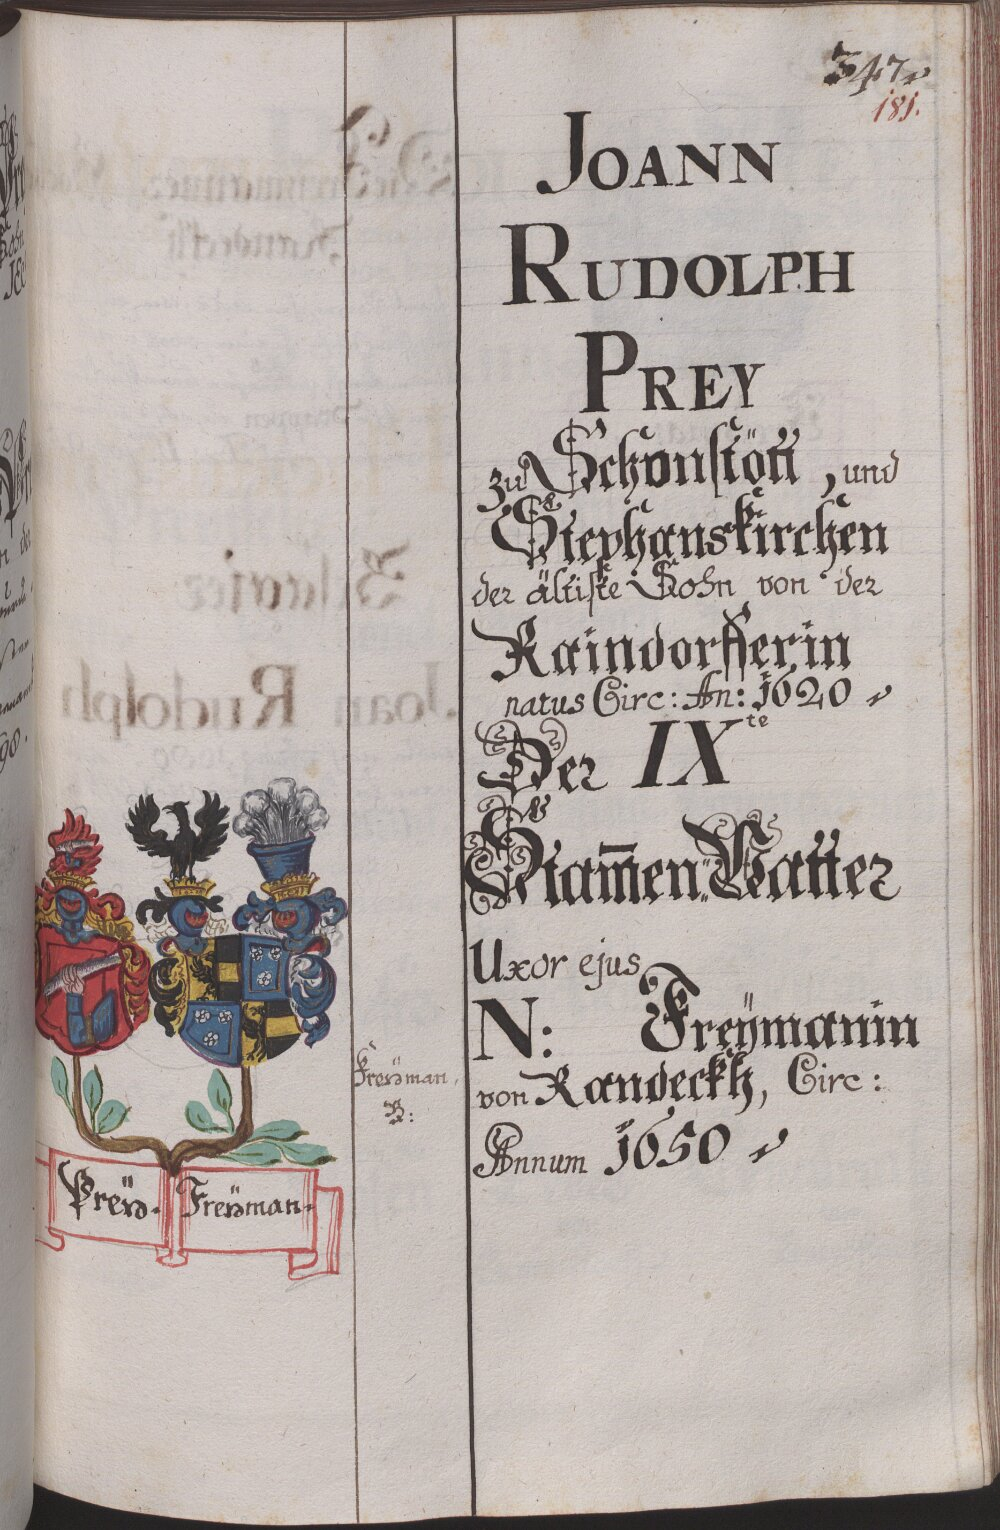 347.
181.
JOANN
RUDOLPH
PREY
zu Schönstött, und
Stephanskirchen
der ältiste Sohn von der
Raindorfferin
natus Circ: An: 1620
Der IXte
Stam̄en Vatter
Uxor ejus
N: Freÿmanin
von Randeckh, Circ:
Annum 1650
Freÿman
N:
Preÿ. Freÿman.